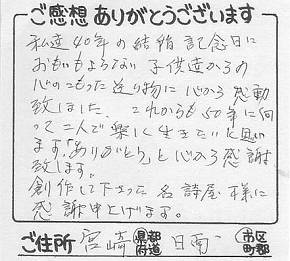 ご感想ありがとうございます
私達40年の結婚記念日に
おもいもよらない子供達からの
心のこもった送り物に心から感動
致しました。これからも50年に向
って二人で楽しく生きたいと思い
ます。「ありがとう」と心から感謝
致します。
創作して下さった名詩屋様に
感謝申上げます。
ご住所 宮崎 都道府県 日南 市区町郡